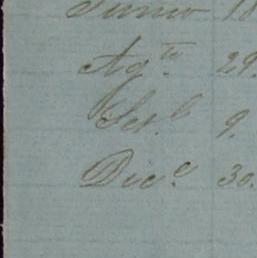 Junio 18
Ag.to 29.
Set.b 9.
Dic.e 30.